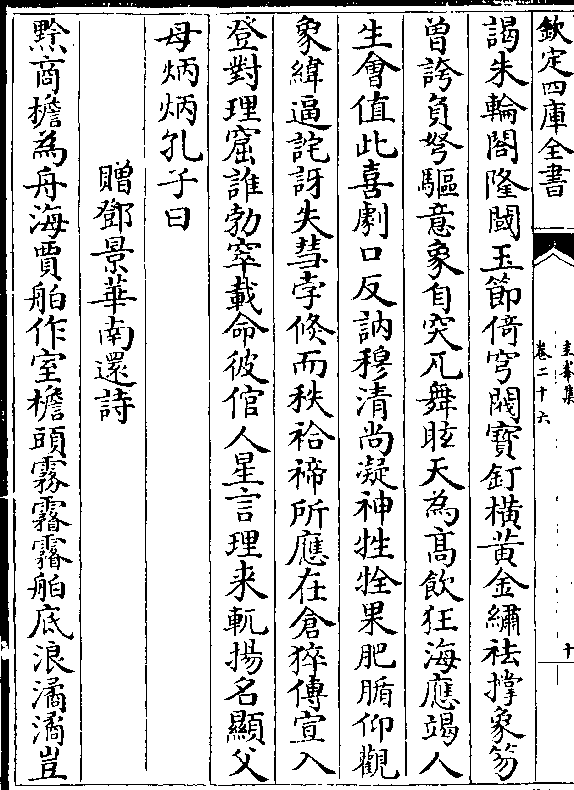 欽定四庫全書
圭峯集
卷二十六
十
謁朱輪閤隆闕玉節倚穹閥寳釘横黄金繡祛撑象笏
曾誇負弩驅意象自突兀舞眩天為髙飲狂海應竭人
生會值此喜劇口反訥穆清尚凝神牲牷果肥腯仰觀
象緯逼詫訝失彗孛倐而秩祫禘所應在倉猝傳宣入
登對理窟誰勃窣載命彼倌人星言理来軏揚名顯父
母炳炳孔子曰
贈鄧景華南還詩
黟商檐為舟海賈舶作室檐頭霧霫霫舶底浪潏潏豈